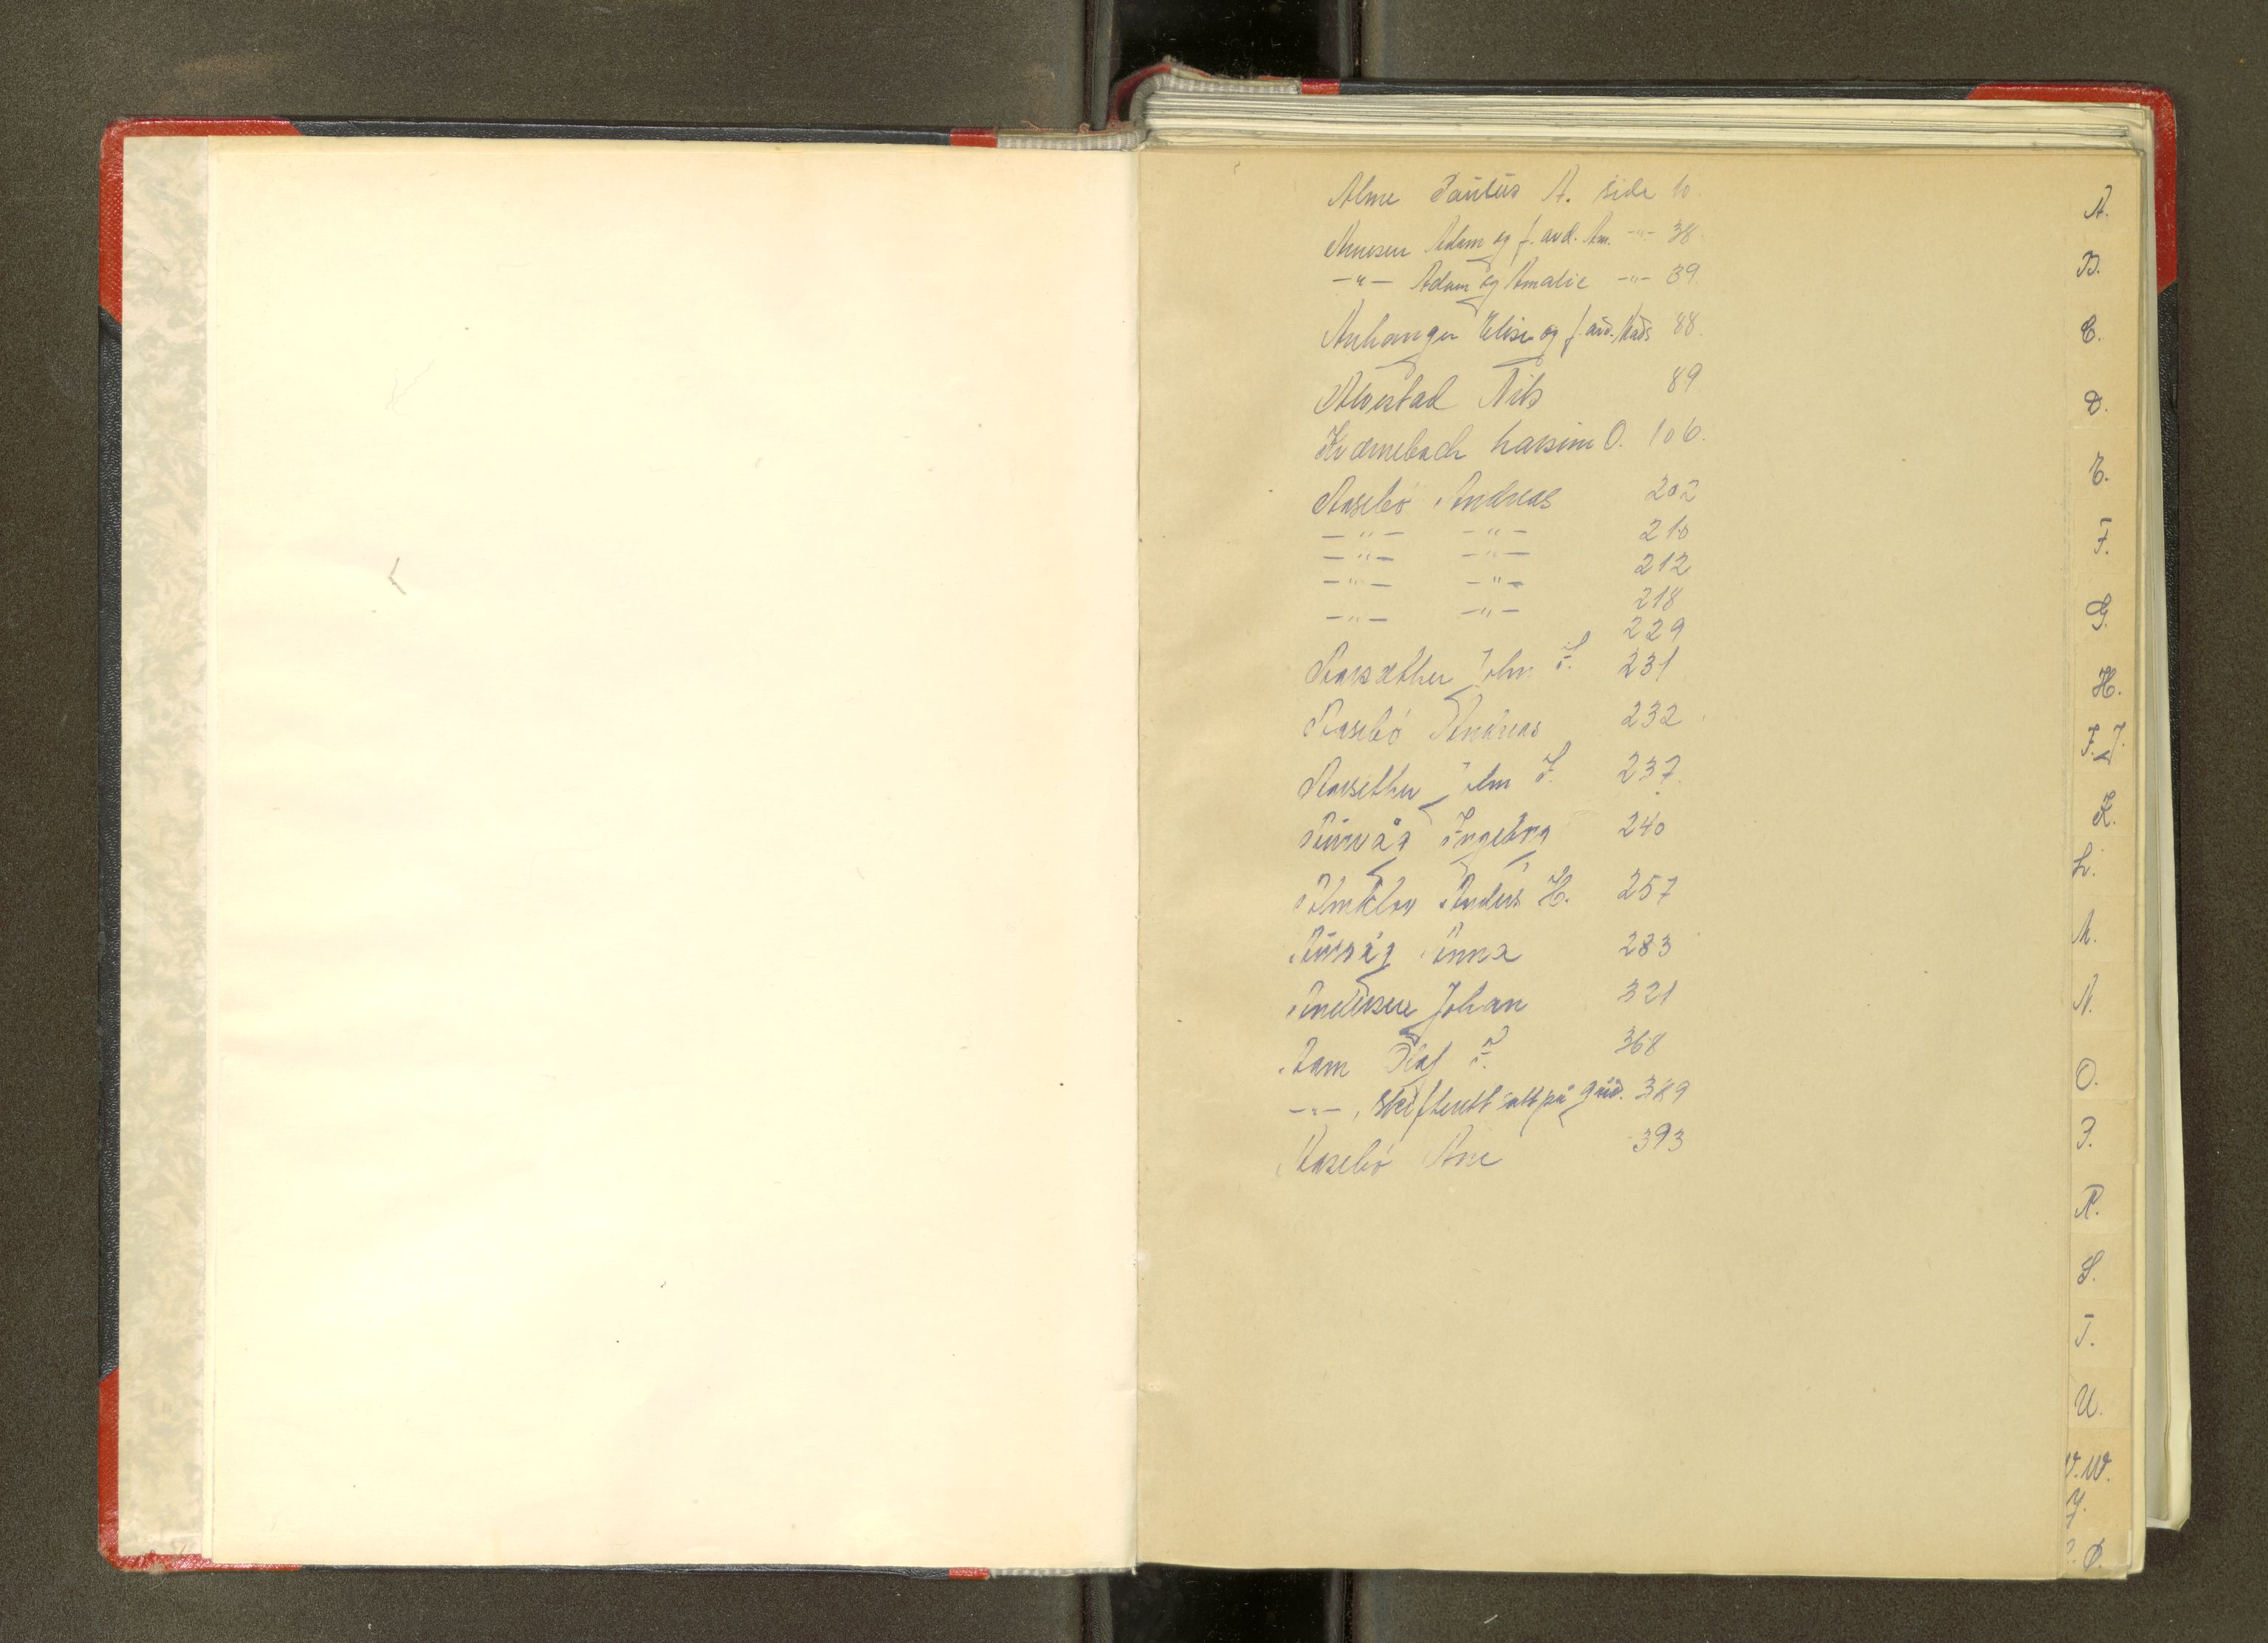 Alme Paulus A. side 10.
Arnesen Adam og f. avd. Am. -"- 38.
-"- Adam og Amalie -"- 39.
Anhanger Elise og f. avd. Mads 88.
Alvestad Nils 89
Kvarnebach Larsine O. 106.
Aasebö Andreas 202
-"- -"- 210
-"- -"- 212
-"- -"- 218
-"- -"- 229
Aarsæther John I. 231
Aasebö Andreas 232
Aarsether John I. 237.
Aurvåg Ingeborg 240
Almklov Anders H. 257
Aurvåg Anna 283
Andersen Johan 321
Aam Olaf P. 368
-"-, Skifterett satt på gård. 389
Aasebö Ane 393
A.
B.
C.
D.
E.
F.
G.
H.
I. J.
K.
L.
M.
N.
O.
P.
R.
S.
T.
U.
V. W.
Y.
Ø.